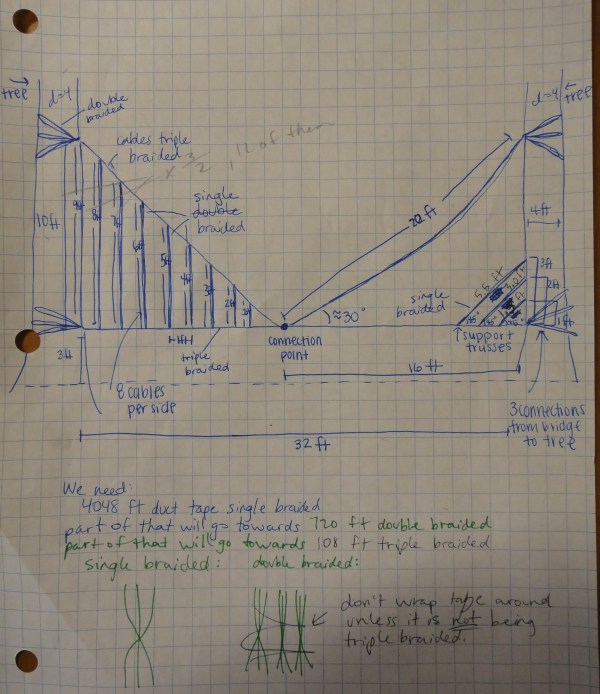 →
tree
d=4
double
braided
cables triple
braided
x 3/2, 12 of them
single
double
braided
10ft
9ft
8ft
7ft
6ft
5ft
4ft
3ft
2ft
1ft
3ft
8 cables
per side
1ft
triple
braided
connection
point
32 ft
d=4
←
tree
20 ft
4ft
≈30°
single
braided
5.5 ft
3ft
2ft
1ft
↑support
trusses
16 ft
3 connections
from bridge
to tree
We need:
4048 ft duct tape single braided
part of that will go towards 720 ft double braided
part of that will go towards 108 ft triple braided
single braided:
double braided:
don't wrap tape around
unless it is not being
triple braided.